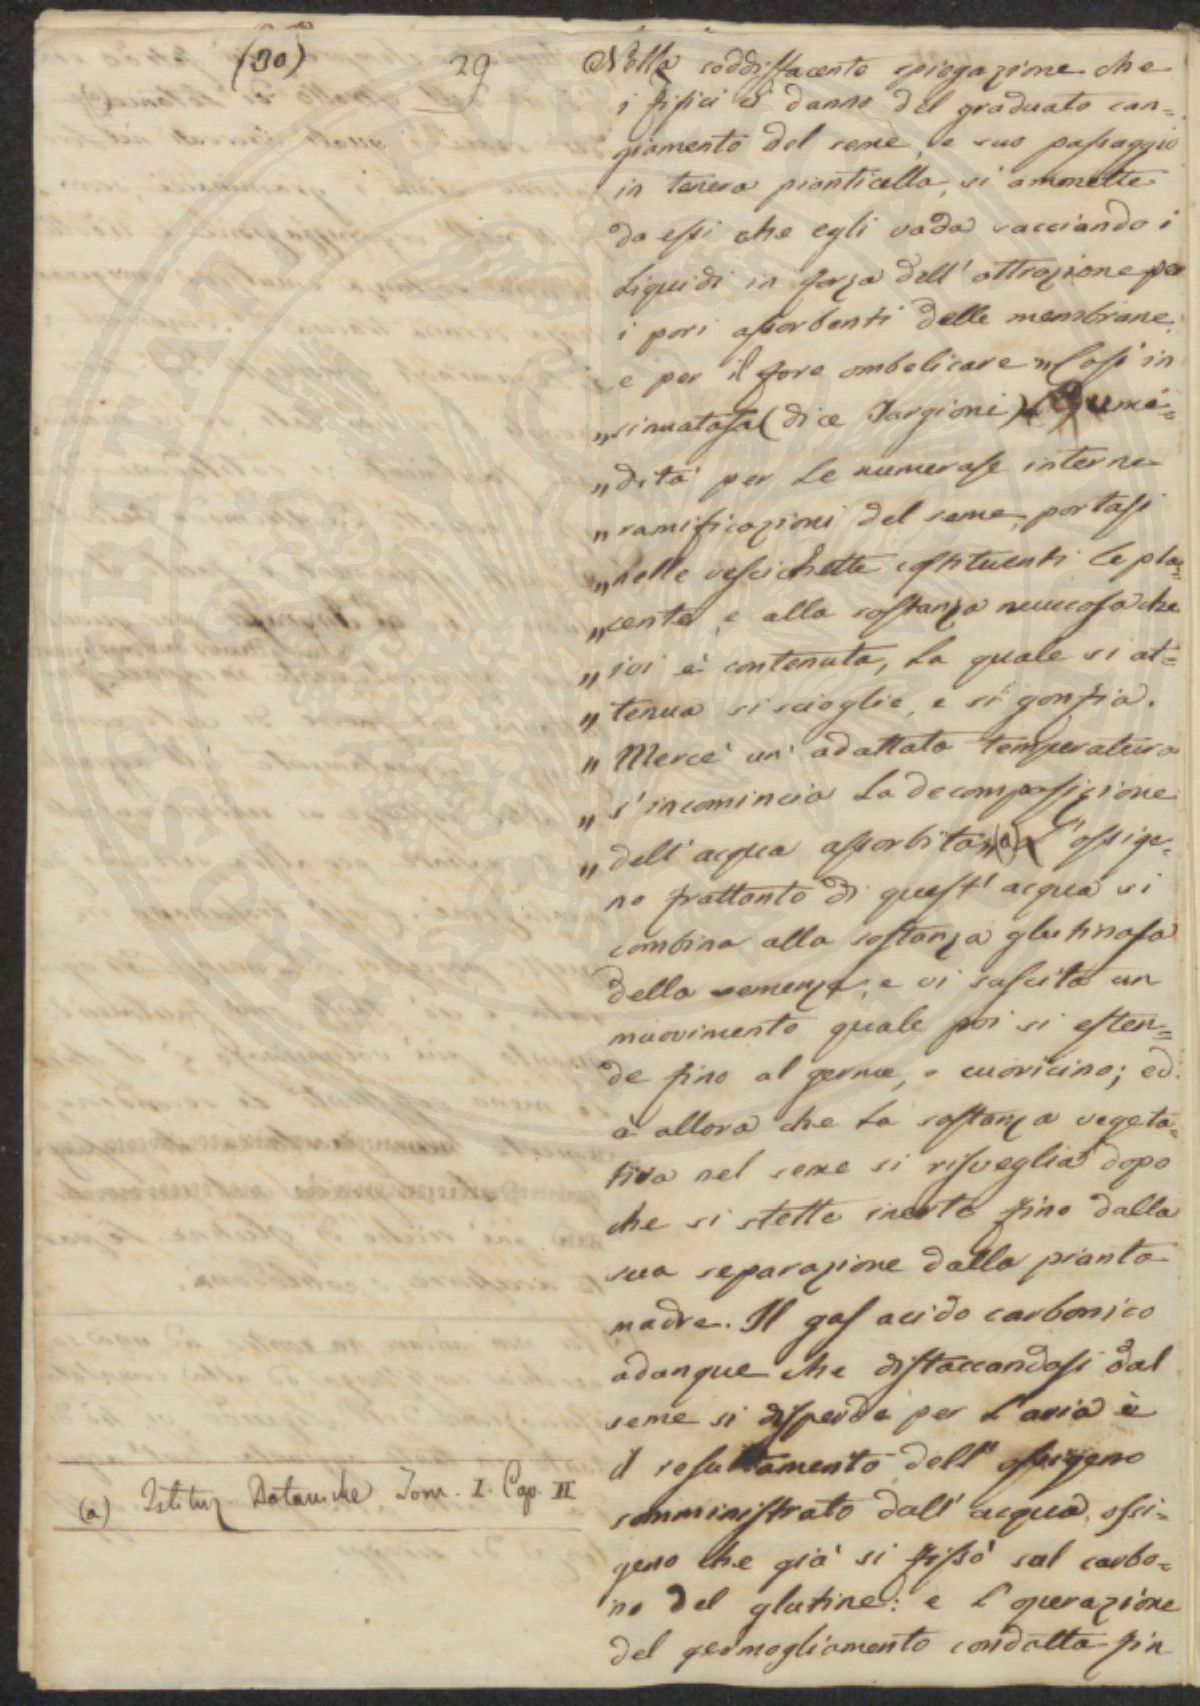 (30)
29
Nella soddisfacente spiegazione che
i fisici ci danno del graduato can=
giamento del seme, e suo passaggio
in tenera pianticella, si ammette
da essi che egli vada cacciando i
liquidi in forza dell' attrazione per
i pori assorbenti delle membrane,
e per il foro ombelicare „ Così in
„ sinuatasa (dice Targioni) l' umi=
„ dità per le numerose interne
„ ramificazioni del seme, portasi
„ nelle vescichette costituenti le pla=
„ cente, e alla sostanza muccosa che
„ ivi è contenuta, la quale si at=
„ tenua si scioglie, e si gonfia.
„ Mercè un' adattata temperatura
„ s' incomincia la decomposizione
„ dell' acqua assorbita „ (a) L' ossige=
no frattanto di quest' acqua si
combina alla sostanza glutinosa
della semenza, e vi suscita un
muovimento quale poi si esten=
de fino al germe, o cuoricino; ed
è allora che la sostanza vegeta=
tiva nel seme si risveglia dopo
che si stette inerte fino dalla
sua separazione dalla pianta
madre. Il gas acido carbonico
adunque che distaccandosi dal
seme si disperde per l' aria è
il resultamento dell' ossigeno
somministrato dall' acqua, ossi=
geno che già si fissò sul carbo=
no del glutine: e l' operazione
del germogliamento condotta fin
(a) Istituz. Botaniche Tom. I. Cap. II